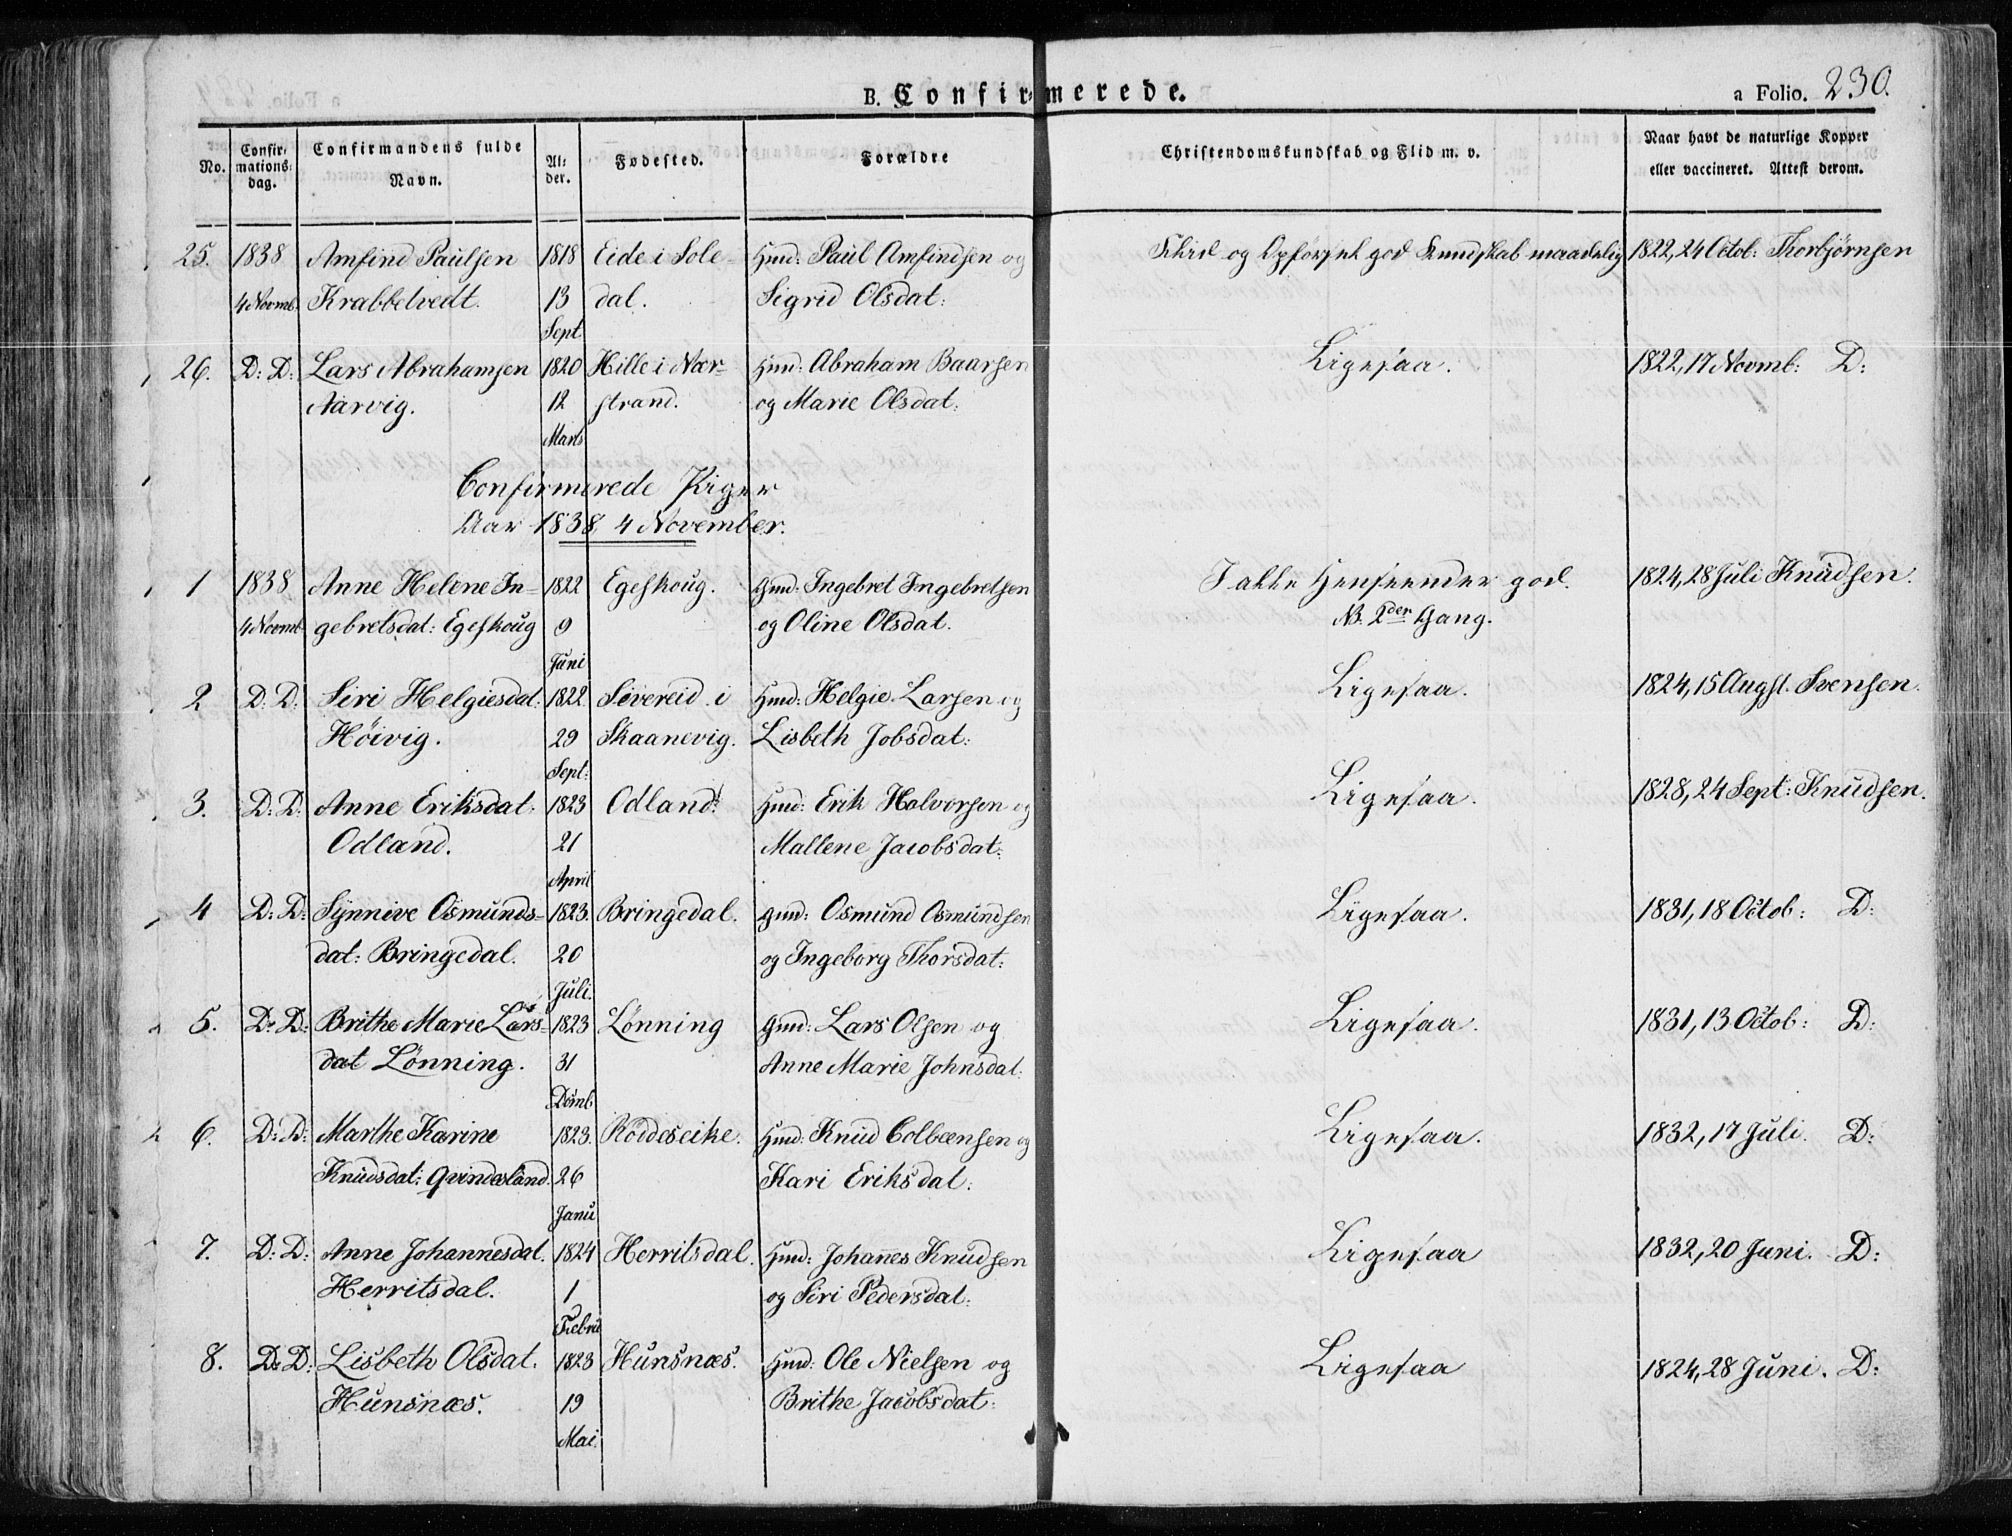 B. Confirmerede.
a Folio. 230.
No.
Confir-
mations-
dag.
Confirmandens fulde
Navn.
Al-
der.
Fødested.
Forældre
Christendomskundskab og Flid m. v.
Naar havt de naturlige Kopper
eller vaccineret. Attest derom.
25. 1838 Amfind Paulsen 1818 Eide i Sole- Hmd: Paul Amfindsen og Flid og Opførsel god Kundskab maadelig 1822, 24 Octob: Thorbjørnsen
4 Novmb. Krabbetvedt. 13 dal. Sigrid Olsdat:
Sept
26. D: D: Lars Abrahamsen 1820 Hille i Nær- Hmd: Abraham Baarsen Ligesaa. 1822, 17 Novmb: D:
Aarvig. 12 strand. og Marie Olsdat:
Marts
Confirmerede Piger
Aar 1838 4 November.
1 1838 Anne Helene In- 1822 Egeskoug. Gmd: Ingebret Ingebretsen I alle Henseender god. 1824, 28 Juli Knudsen.
4 Novmb gebretsdat: Egeskoug 9 og Oline Olsdat. NB. 2den Gang.
Juni
2 D: D: Siri Helgiesdat: 1822 Severeid i Hmd: Helgie Larsen og Ligesaa. 1824, 15 Augst. Svensen.
Høivig. 29 Skaanevig. Lisbeth Jobsdat:
Sept:
3. D: D: Anne Eriksdat. 1823 Odland. Hmd: Erik Halvorsen og Ligesaa. 1828, 24 Sept: Knudsen.
Odland. 21 Mallene Jacobsdat:
April
4 D: D: Synnive Osmunds- 1823. Bringedal. Gmd: Osmund Osmundsen Ligesaa. 1831, 18 Octob: D:
dat: Bringedal. 20 og Ingeborg Thorsdat:
Juli.
5. D: D: Brithe Marie Lars- 1823 Lønning Gmd: Lars Olsen og Ligesaa. 1831, 13 Octob: D:
dat Lønning. 31 Anne Marie Johnsdat:
Desmb
6. D: D: Marthe Karine 1823. Røddeseike. Hmd: Knud Colbeensen og Ligesaa. 1832, 17 Juli. D:
Knudsdat: Qvindesland. 26 Kari Eriksdat:
Janu
7. D: D: Anne Johannesdat. 1824 Herritsdal. Hmd: Johanes Knudsen Ligesaa 1832, 20 Juni. D:
Herritsdal. 1 og Siri Pedersdat:
Febru
8. D: D: Lisbeth Olsdat. 1823 Hunsnæs. Hmd: Ole Nielsen og Ligesaa 1824, 28 Juni. D:
Hunsnæs. 19 Brithe Jacobsdat:
Mai.